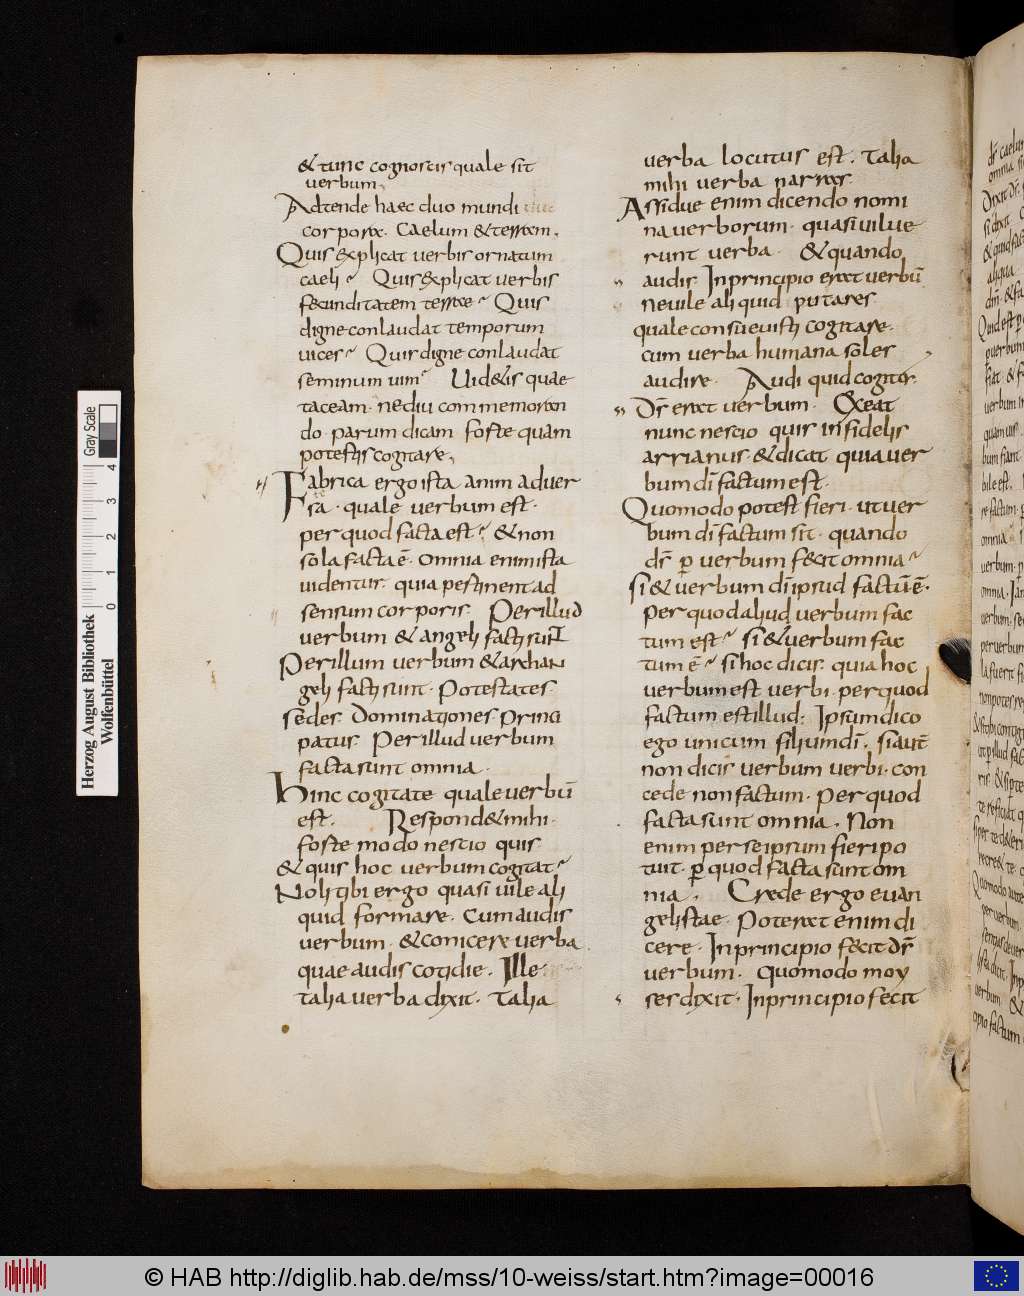 & tunc cognoscis quale sit
verbum.
Adtende haec duo mundi
corpora. Caelum & terram.
Quis explicat verbis ornatum
caeli? Quis explicat verbis
fecunditatem terrae? Quis
digne conlaudat temporum
vices? Quis digne conlaudat
seminum vim? Uid&is quae
taceam. ne diu commemoran
do. parum dicam forte quam
potestis cogitare.
Fabrica ergo ista anim adver
sa. quale verbum est.
per quod facta est? & non
sola facta ē. omnia enim ista
videntur. quia pertinent ad
sensum corporis. Per illud
verbum & angeli facti sunt
Per illum verbum & archan
geli facti sunt. Potestates.
sedes. Dominationes princi
patus. Per illud verbum
facta sunt omnia.
Hinc cogitate quale verbū
est. Respond& mihi.
forte modo nescio quis
& quis hoc verbum cogitat?
Noli tibi ergo quasi vile ali
quid formare. Cum audis
verbum. & conicere verba
quae audis cotidie. Ille
talia verba dixit. Talia
verba locutus est. Talia
mihi verba narras.
Assidue enim dicendo nomi
na verborum. quasi vilue
runt verba. & quando
audis. In principio erat verbū
ne vile aliquid putares
quale consuevisti cogitare.
cum verba humana soles
audire. Audi quid cogites.
Dr̄ erat verbum. Exeat
nunc nescio quis infidelis
arrianus. & dicat quia ver
bum dī factum est.
Quomodo potest fieri. ut ver
bum dī factum sit. quando
dr̄ ꝑ verbum fecit omnia?
Si & verbum dī ipsud factū ē.
Per quod aliud verbum fac
tum est? si & verbum fac
tum ē? si hoc dicis. quia hoc
verbum est verbi. per quod
factum est illud: Ipsum dico
ego unicum filium dī. si autē
non dicis verbum verbi. con
cede non factum. per quod
facta sunt omnia. Non
enim per se ipsum fieri po
tuit. ꝑ quod facta sunt om
nia. Crede ergo evan
gelistae. Poterat enim di
cere. In principio fecit dr̄
verbum. Quomodo moy
ses dixit. In principio fecit
Herzog August Bibliothek
Wolfenbüttel
Gray Scale
0 1 2 3 4
© HAB http://diglib.hab.de/mss/10-weiss/start.htm?image=00016